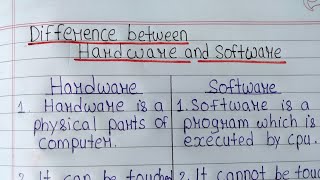 Difference between
Hardware and Software
Hardware
1. Hardware is a
physical parts of
computer.
2. It can be touched
Software
1. Software is a
program which is
executed by cpu.
2. It cannot be touc